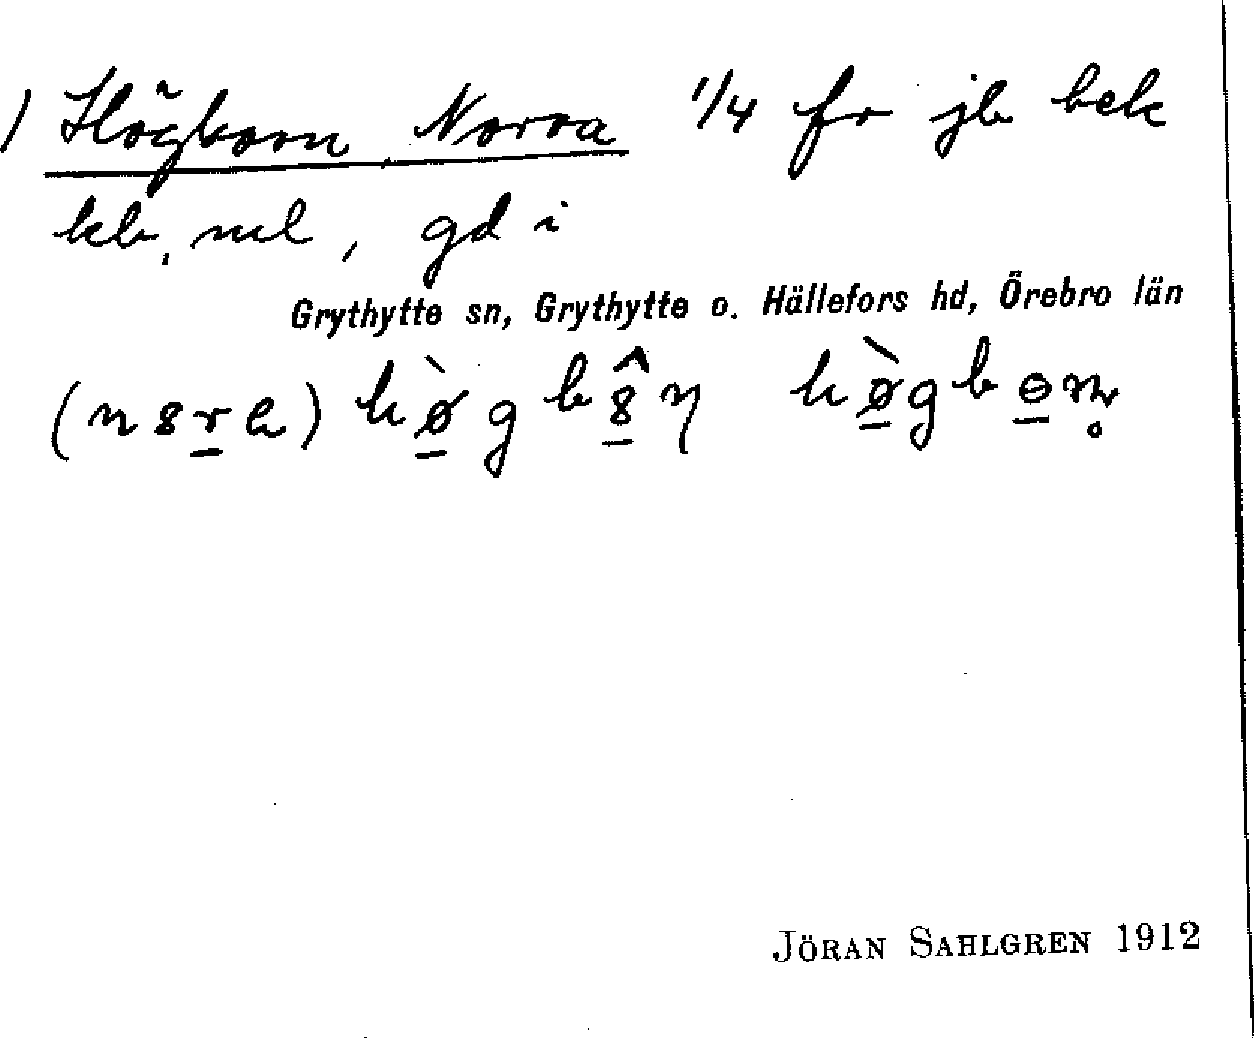 1) Högborn, Norra 1/4 fr jb bek
kb, ml, gd i
Grythytte sn, Grythytte o. Hällefors hd, Örebro län
JÖRAN SAHLGREN 1912